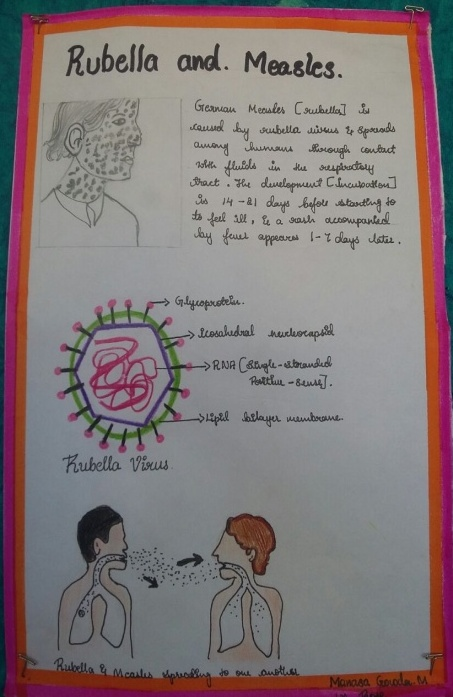 Rubella and. Measles.
German Measles [rubella] is
caused by rubella virus & spreads
among humans through contact
with fluids in the respiratory
tract. The development [incubation]
is 14-21 days before starting to
to feel ill, & a rash accompanied
by fever appears 1-7 days later.
Glycoprotein.
Icosahedral nucleocapsid
RNA [Single-stranded
Positive-Sense].
Lipid bilayer membrane.
Rubella Virus.
Rubella & Measles spreading to one another
Manasa Gowda. M